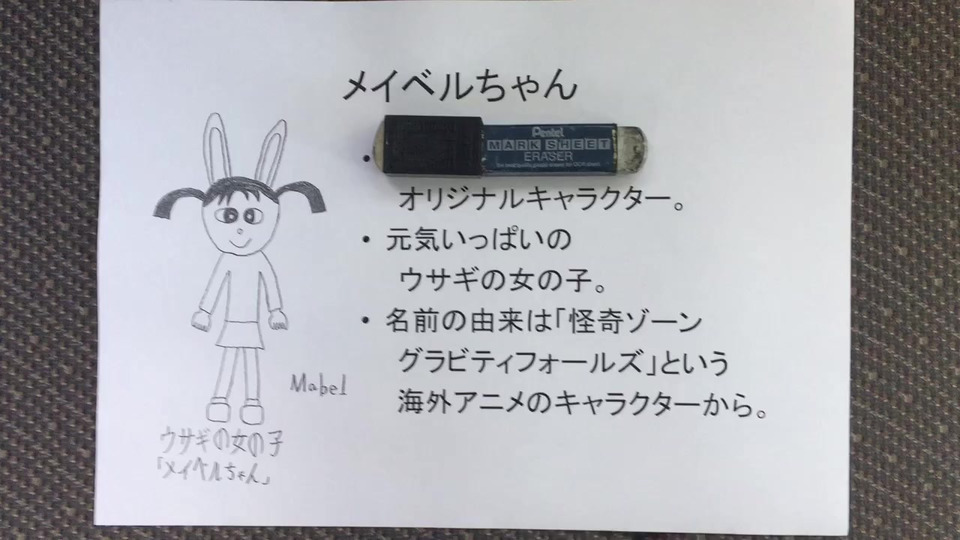 メイベルちゃん
Pentel
MARK SHEET
ERASER
オリジナルキャラクター。
・元気いっぱいの
ウサギの女の子。
・名前の由来は「怪奇ゾーン
グラビティフォールズ」という
海外アニメのキャラクターから。
Mabel
ウサギの女の子
「メイベルちゃん」